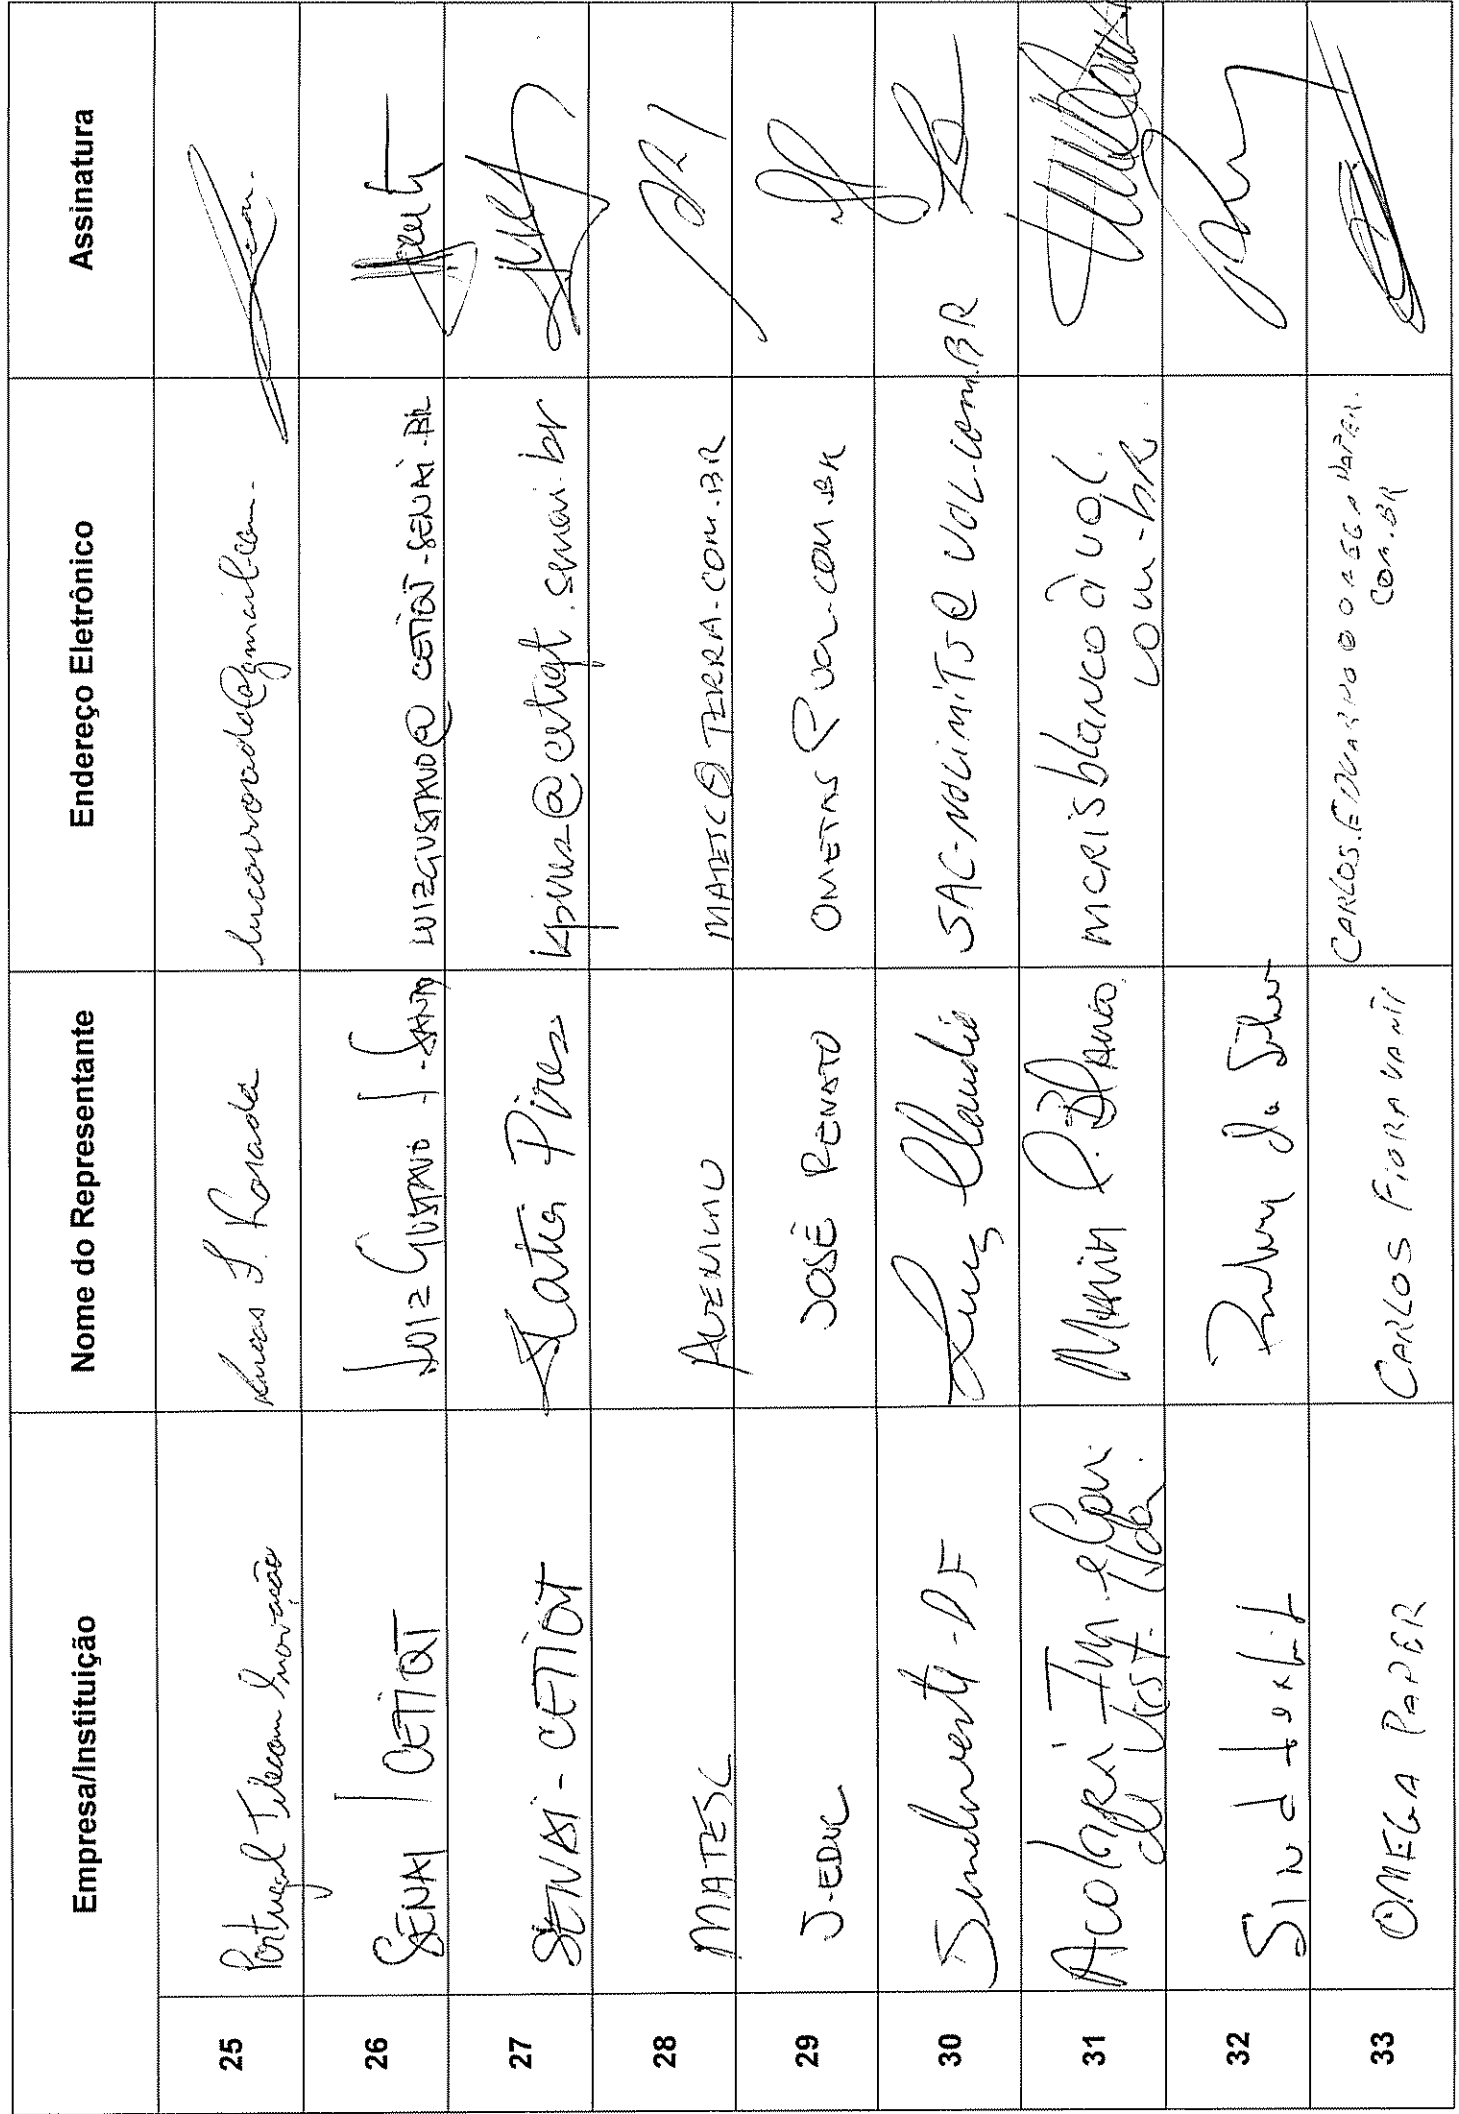 Empresa/Instituição Nome do Representante Endereço Eletrônico Assinatura
25 Portugal Telecom Inovação Lucas F. Rosada lucasrosada@gmail.com.
26 SENAI / CETIQT LUIZ GUSTAVO LUIZGUSTAVO@CETIQT.SENAI.BR
27 SENAI - CETIQT Katia Pires kpires@cetiqt.senai.br
28 MATESC MATESC@TERRA.COM.BR
29 J-EDUC JOSÉ RENATO
30 -DF Luiz Claudio SAC-NOLIMITS@UOL.COM.BR
31 Acobri Imp. e Com. de Vest. Ltda. Maria C. Blanco mcrisblanco@uol.
com.br
32 Sinditextil da Silva
33 OMEGA PAPER CARLOS FIORAVANTI CARLOS.EDUARDO@OMEGAPAPER.
COM.BR